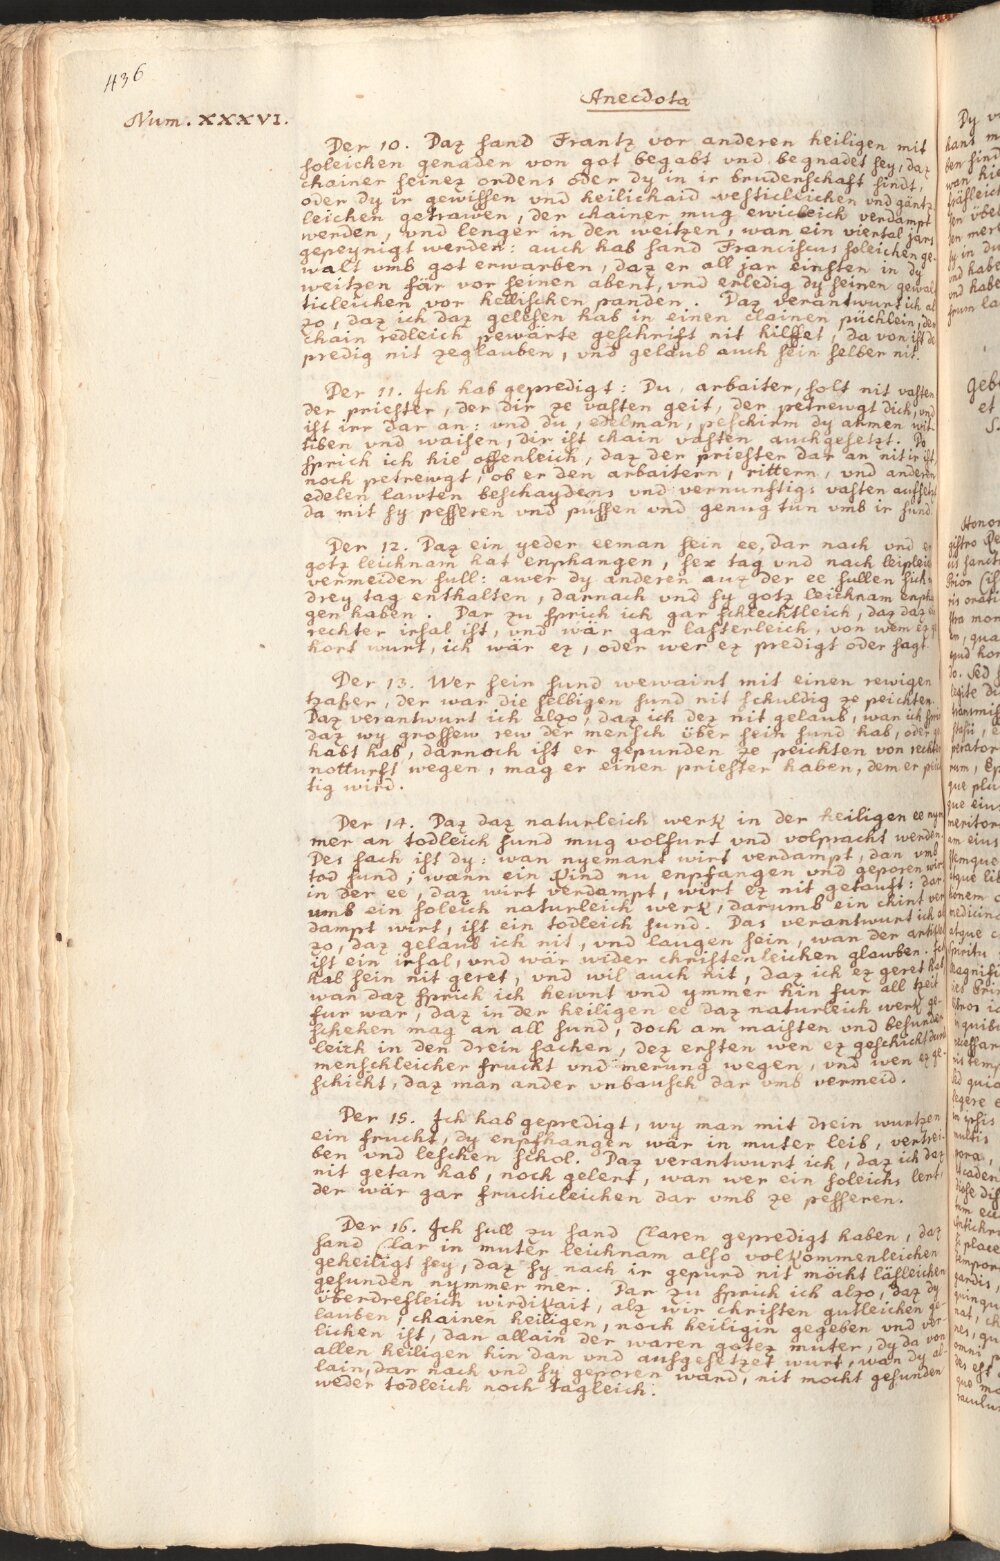 436
Anecdota
Num. XXXVI.
Der 10. Daz sand Frantz vor anderen heiligen mit
soleichen genaden von got begabt vnd begnadet sey, daz
chainer seinez ordens oder dy in ir brudenschaft sindt,
oder dy ir gewissen vnd heilichaid vesticleichen vnd gäntz
leichen getrawen, der chainer mug ewicleich verdampt
werden, vnd lenger in den weitzen, wan ein viertal jars
gepeynigt werden: auch hab sand Franciscus soleichen ge-
walt vmb got erwarben, daz er all jar einsten in dy
weitzen far vor seinen abent, vnd erledig dy seinen gewal
ticleichen vor hellischen panden. Daz verantwurt ich al
zo, daz ich daz gelesen hab in einen clainen püchlein, dez
chain redleich pewärte geschrift nit hilffet, da von ist de
predig nit zeglauben, vnd gelaub auch sein selber nit.
Der 11. Ich hab gepredigt: Du, arbaiter, solt nit vasten
der priester, der dir ze vasten geit, der petrewgt dich, vnd
ist irr dar an: vnd du, edelman, peschirm dy armen wit-
tiben vnd waisen, dir ist chain vasten auchgesetzt. Do
sprich ich hie offenleich, daz der priester dar an nit ir ist
noch petrewgt, ob er den arbaitern, rittern, vnd anderen
edelen lawten beschaydens vnd vernunftigs vasten aufsetzt
da mit sy pesseren vnd pussen vnd genug tun vmb ir sund
Der 12. Daz ein yeder eeman sein ee, dar nach vnd er
gotz leichnam hat enphangen, sex tag vnd nach leipleich
vermeiden sull: awer dy anderen auz der ee sullen sich
drey tag enthalten, darnach vnd sy gotz leichnam enpha
gen haben. Dar zu sprich ich gar schlechtleich, daz daz ein
rechter irsal ist, vnd wär gar lasterleich, von wem ez ge
hort wurt, ich wär ez, oder wer ez predigt oder sagt
Der 13. Wer sein sund wewaint mit einen rewigen
tzaher, der war die selbigen sund nit schuldig ze peichten.
Daz verantwurt ich alzo, daz ich dez nit gelaub, wan ich sprich
daz wy grossew rew der mensch über sein sund hab, oder ge
habt hab, darnoch ist er gepunden ze peichten von rechter
notturft wegen, mag er einen priester haben, dem er peich
tig wird.
Der 14. Daz daz naturleich werk in der heiligen ee nym
mer an todleich sund mug volfurt vnd volpracht werden.
Des sach ist dy: wan nyemant wirt verdampt, dan vmb
tod sund; wann ein kind nu enpfangen vnd geporen wirt
in der ee, daz wirt verdampt, wirt ez nit getauft: dar
umb ein soleich naturleich werk, darumb ein chint ver
dampt wirt, ist ein todleich sund. Das verantwurt ich al
zo, daz gelaub ich nit, vnd laugen sein, wan der artikel
ist ein irsal, vnd wär wider christenleichen glawben. Ich
hab sein nit geret, vnd wil auch nit, daz ich ez geret hab
wan daz sprich ich hewnt vnd ymmer hin fur all tzeit
fur war, daz in der heiligen ee daz naturleich werk ge-
schehen mag an all sund, doch am maisten vnd besunder
leich in den drein sachen, dez ersten wen ez geschickt durch
menschleicher frucht vnd merung wegen, vnd wen ez ge-
schicht, daz man ander vnbausch dar vmb vermeid.
Der 15. Ich hab gepredigt, wy man mit drein wurtzen
ein frucht, dy enpfhangen wär in muter leib, vertrei-
ben vnd leschen schol. Daz verantwurt ich, daz ich daz
nit getan hab, noch gelert, wan wer ein soleichs lert,
der wär gar fructicleichen dar vmb ze pesseren.
Der 16. Ich sull zu sand Claren gepredigt haben, daz
sand Clar in muter leichnam also volkommenleichen
geheiligt sey, daz sy nach ir gepurd nit möcht läsleichen
gesunden nymmer mer. Dar zu sprich ich alzo, daz dy
überdresleich wirdikait, alz wir christen gutleichen ge-
lauben, chainen heiligen, noch heiligin gegeben vnd ver-
lichen ist, dan allain der waren gotez muter, dy da von
allen heiligen hin dan vnd aufgesetzet wurt, wan dy al-
lain, dar nach vnd sy geporen ward, nit mocht gesunden
weder todleich noch tagleich.